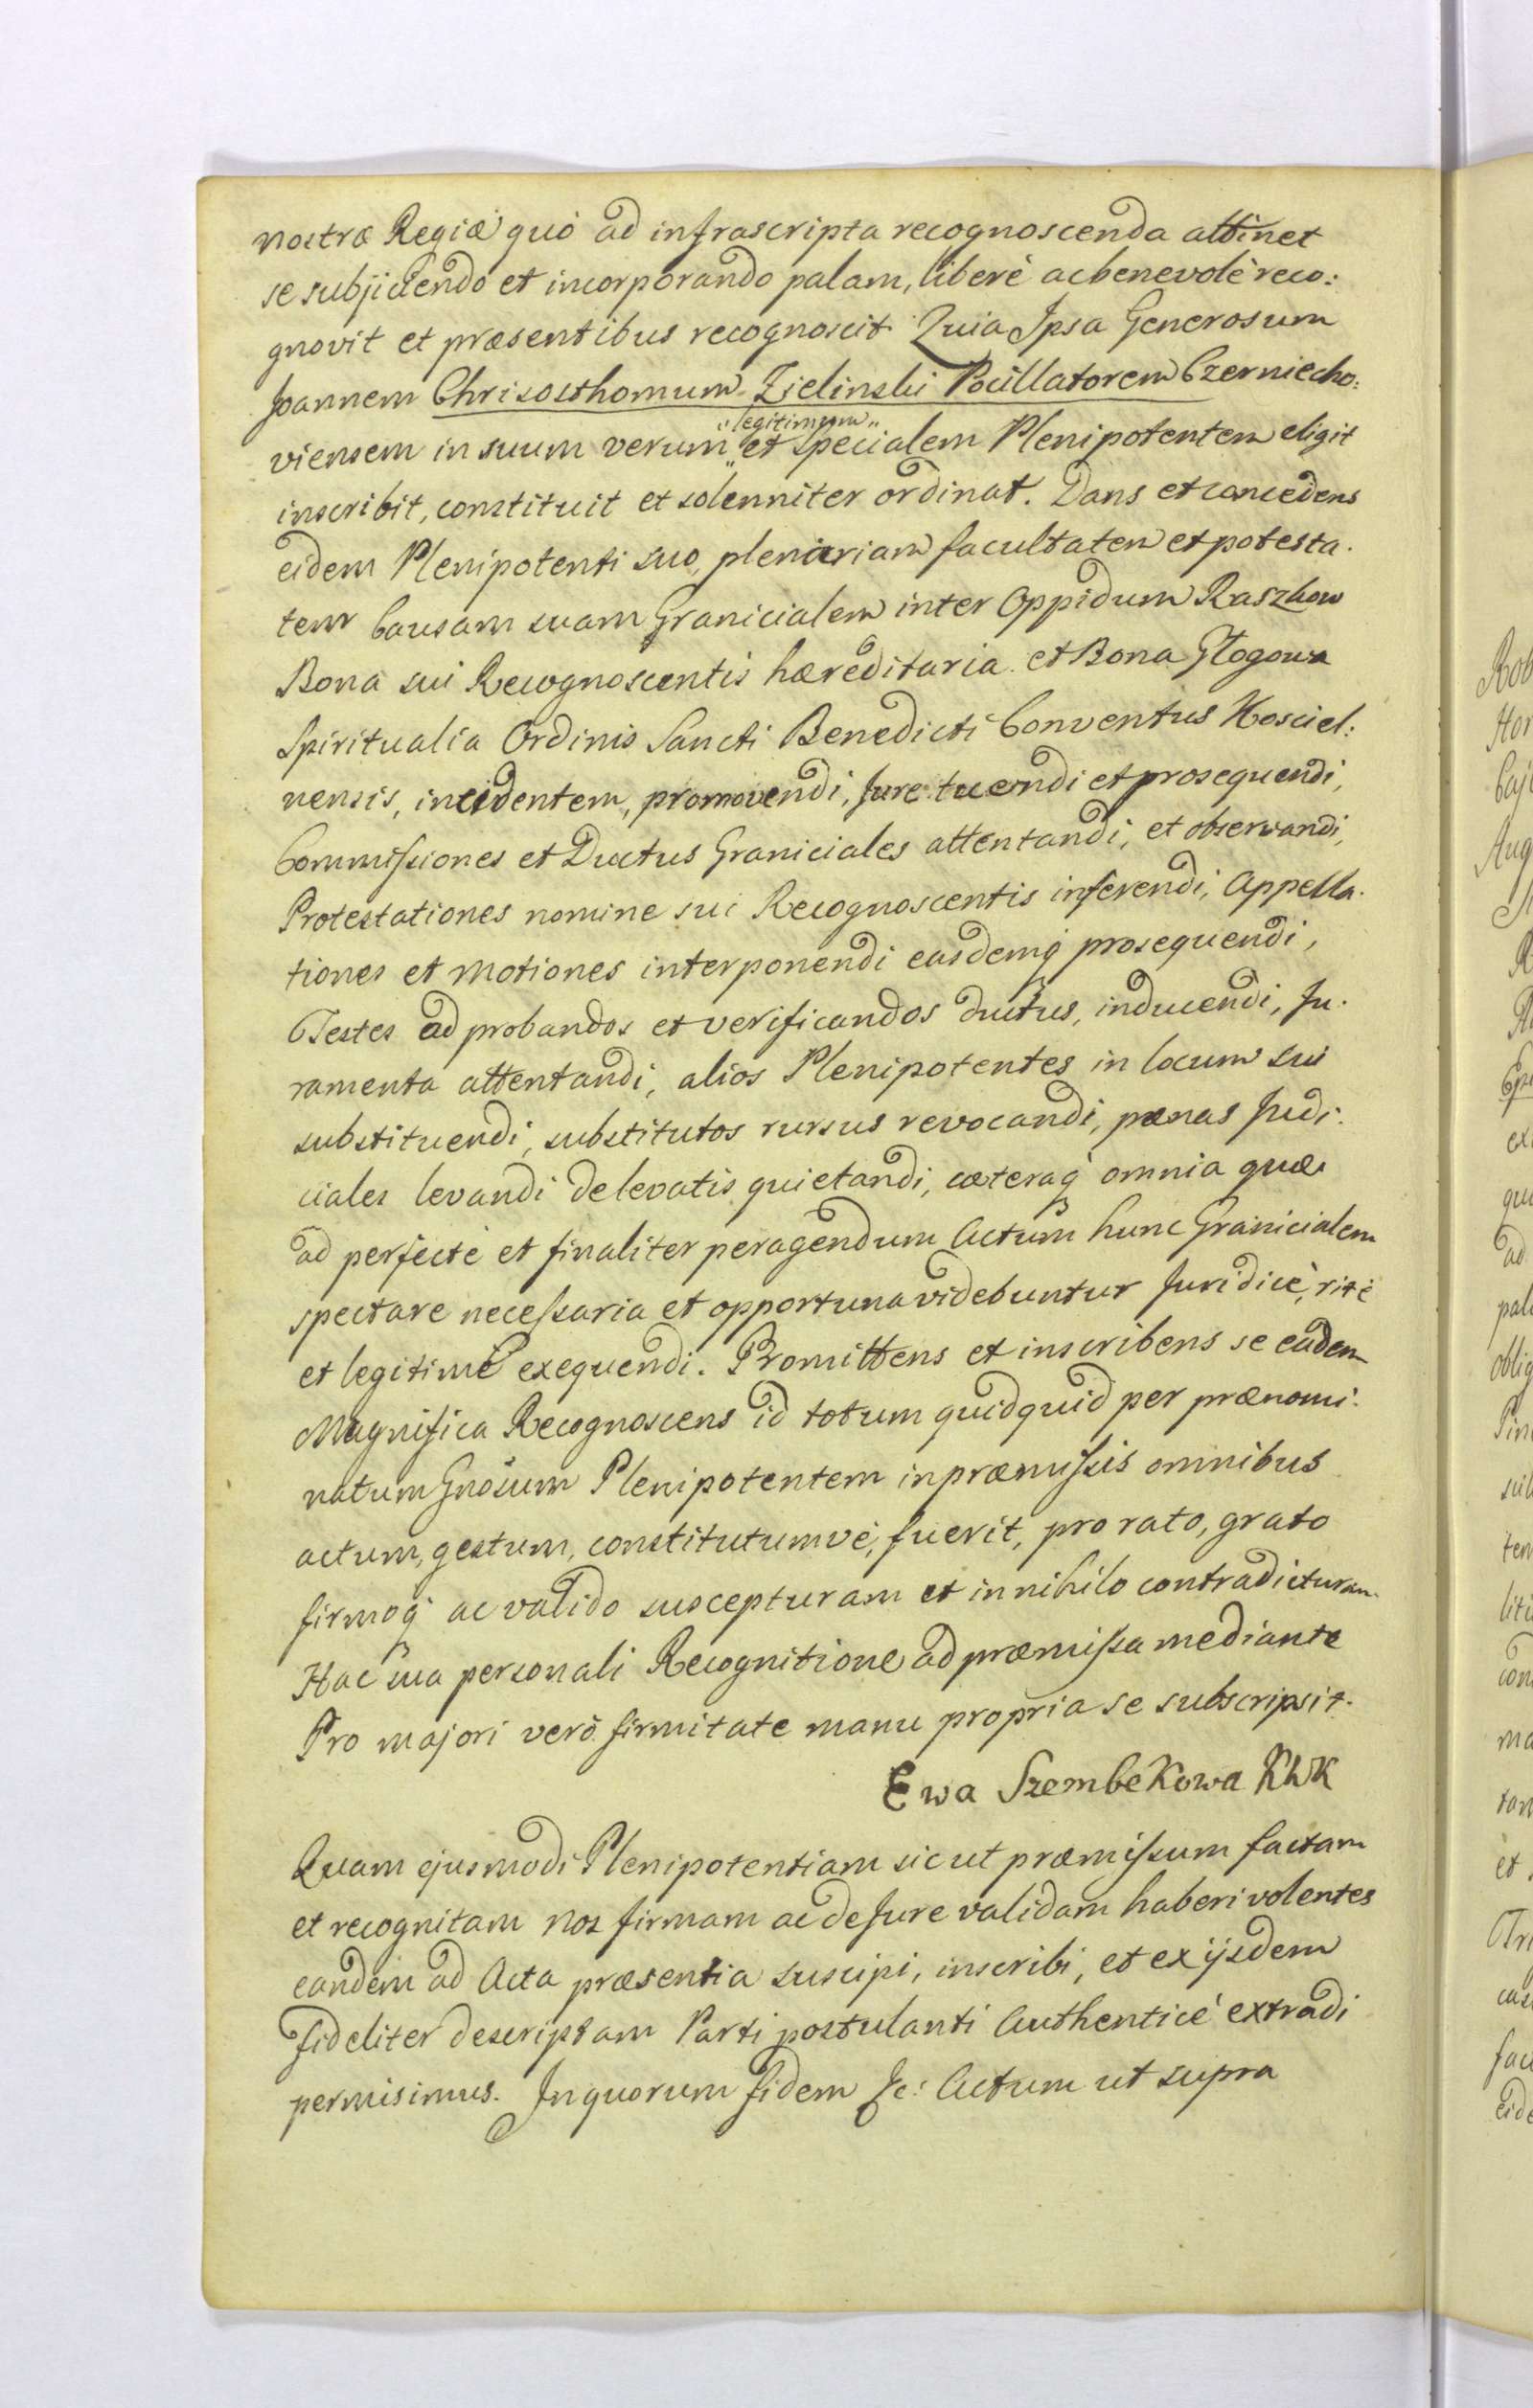 nostræ Regiæ quò ad infrascripta recognoscenda attinet
se subjiciendo et incorporando palam, liberè ac benevolè reco:
gnovit et præsentibus recognoscit. Quia Ipsa Generosum
Joannem Chrisosthomum Zielinski Pocillatorem Czerniecho:
"legitimum"
viensem in suum verum" et specialem Plenipotentem eligit
inscribit, constituit et solenniter ordinat. Dans et concedens
eidem Plenipotenti suo, plenariam facultatem et potesta.
tem Causam suam Granicialem inter Oppidum Raszkow
Bona sui Recognoscentis hæreditaria et Bona Głogowa
Spiritualia Ordinis Sancti Benedicti Conventus Kosciel:
nensis, incidentem, promovendi, Jure tuendi et prosequendi,
Commissiones et Ductus Graniciales attentandi, et observandi,
Protestationes nomine sui Recognoscentis inferendi, Appella.
tiones et Motiones interponendi easdemq prosequendi,
Testes ad probandos et verificandos ductus, inducendi, Ju.
ramenta attentandi, alios Plenipotentes in locum sui
substituendi, substitutos rursus revocandi, pænas Judi:
ciales levandi de levatis quietandi, cæteraq omnia quæ
ad perfectè et finaliter peragendum Actum hunc Granicialem
spectare necessaria et opportuna videbuntur Juridicè, ritè
et legitimè exequendi. Promittens et inscribens se eadem
Magnifica Recognoscens id totum quidquid per prænomi:
natum Gnosum Plenipotentem in præmissis omnibus
actum, gestum, constitutumvè, fuerit, pro rato, grato
firmoq ac valido suscepturam et in nihilo contradicturam.
Hac sua personali Recognitione ad præmissa mediante
Pro majori verò firmitate manu propria se subscripsit.
Ewa SzembeKowa KWK
Quam ejusmodi Plenipotentiam sic ut præmissum factam
et recognitam Nos firmam ac de Jure validam haberi volentes
eandem ad Acta præsentia suscipi, inscribi, et ex ijsdem
fideliter descriptam Parti postulanti Authenticè extradi
permisimus. In quorum fidem &c: Actum ut supra